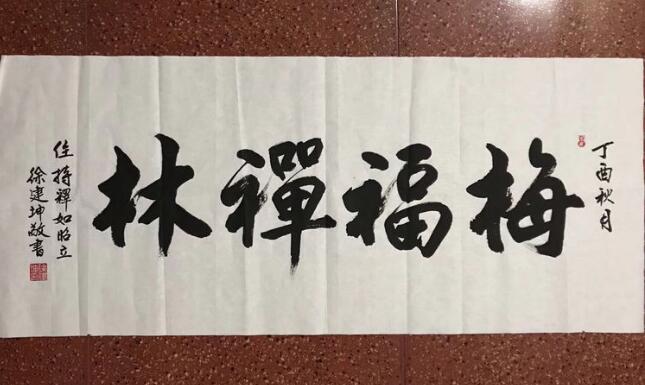 丁酉秋月
梅福禪林
住持釋如昭立
徐建坤敬書